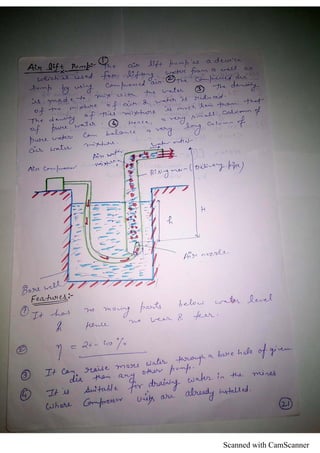 Air lift Pump:- ① The air lift pump is a device
which is used for lifting water from a well or
sump by using compressed air. ② The compressed air
is made to mix with the water. ③ The density
of the mixture of air & water is reduced.
The density of this mixture is much less than that
of pure water. ④ Hence, a very small column of
pure water can balance a very long column of
air water mixture.
water outlet
Air water
mixture
Air Compressor
Rising main (Delivery pipe)
H
h
Air nozzle
Bore well
Features:-
① It has no moving parts below water level
& Hence no wear & tear.
② η = 20-40 %
③ It can raise more water through a bore hole of given
dia than any other pump.
④ It is suitable for draining water in the mines
where Compressor units are already installed.
21
Scanned with CamScanner